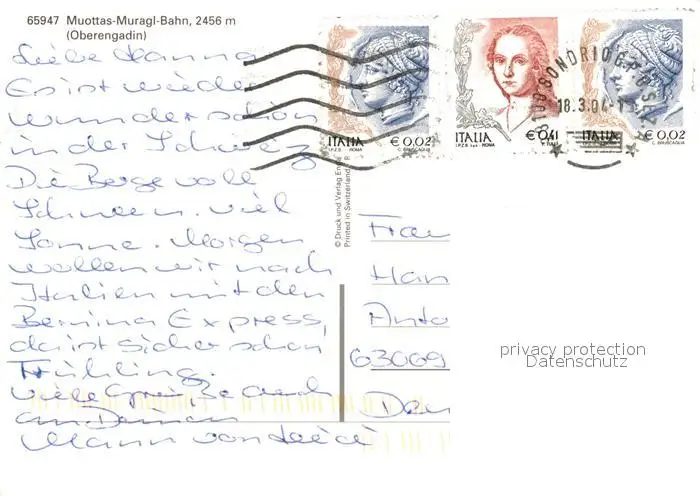 65947 Muottas-Muragl-Bahn, 2456 m
(Oberengadin)
Liebe Hanna
Es ist wieder
wunderschön
in der Schweiz
Die Berge voll
Schnee. viel
Sonne. Morgen
wollen wir nach
Italien mit den
Bernina Express,
da ist sicher schon
Frühling.
Viele Grüße auch
an Deinen
Mann von
ITALIA € 0,02
I.P.Z.S. ROMA C. BRUSCAGLIA
ITALIA € 0,41
I.P.Z.S. ROMA
ITALIA € 0,02
C. BRUSCAGLIA
SONDRIO
18.3.04
© Druck und Verlag
Printed in Switzerland
Frau
Han
Anto
63069
privacy protection
Datenschutz